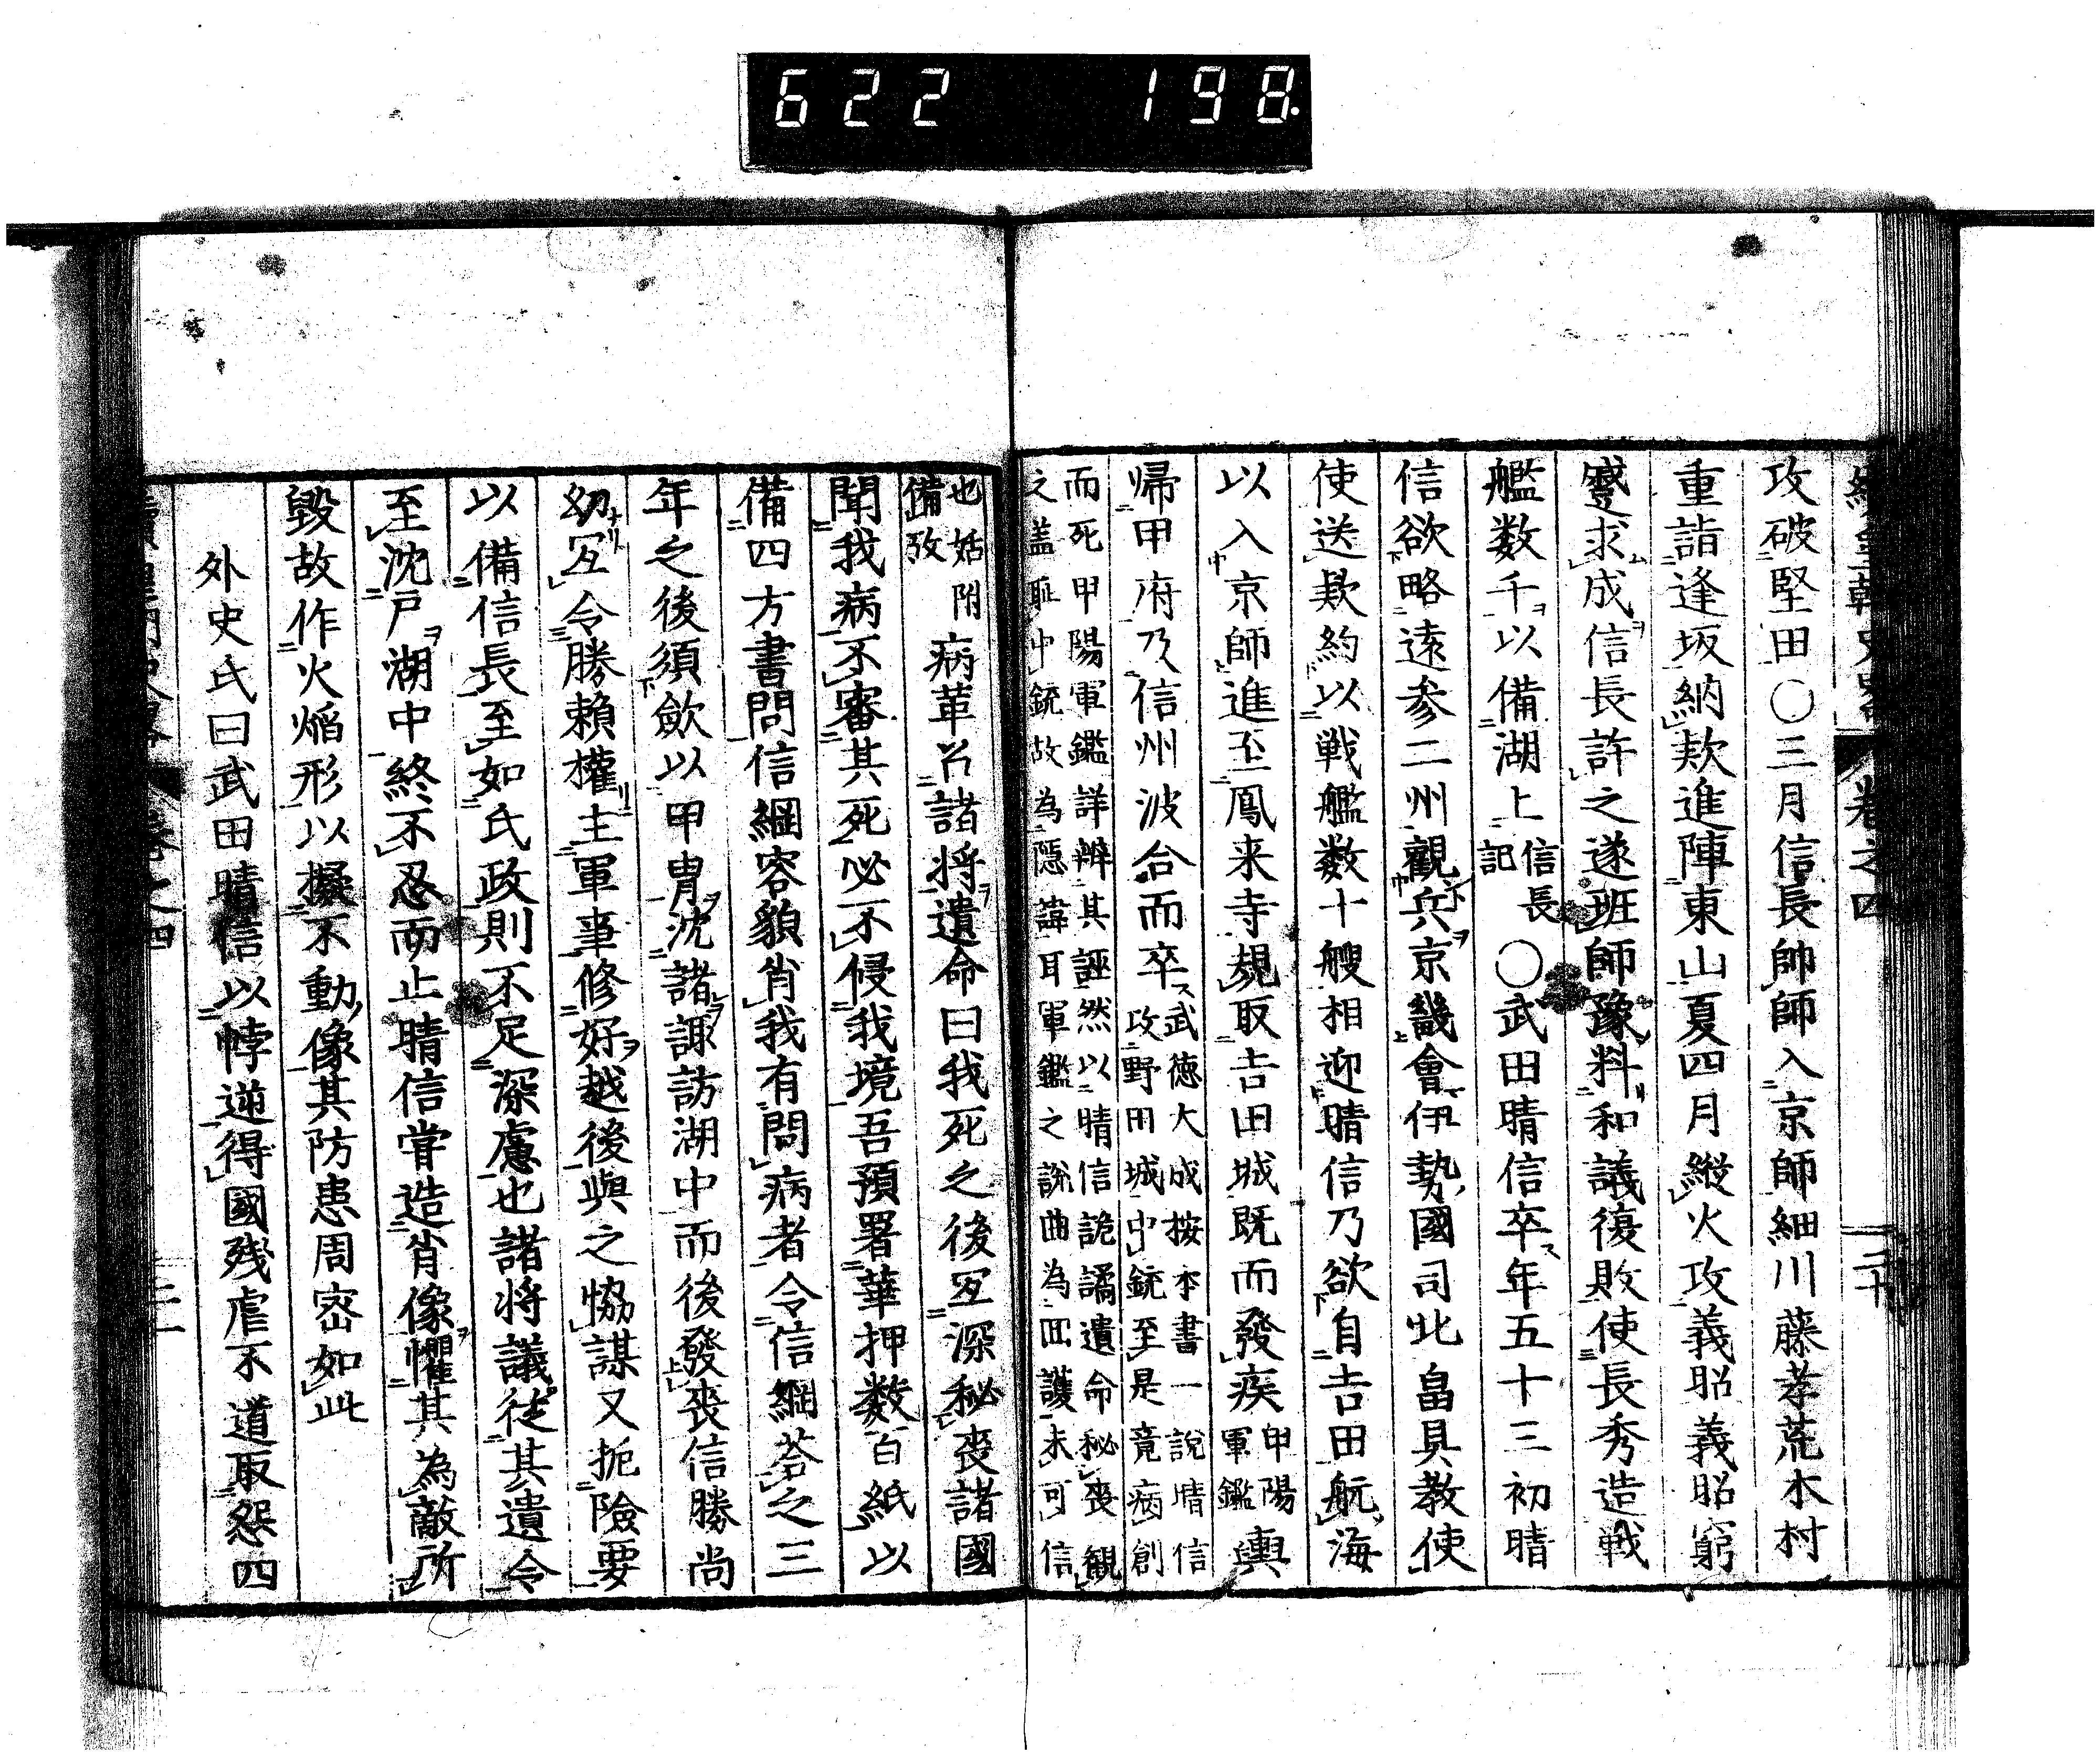 622 198.
卷之四
二十
攻破堅田〇三月信長帥師入京師細川藤孝荒木村
重詣逢坂納欵進陣東山夏四月縱火攻義昭義昭窮
蹙求成信長許之遂班師豫料和議復敗使長秀造戰
艦数千以備湖上信長記〇武田晴信卒年五十三初晴
信欲略遠参二州觀兵京畿會伊勢國司北畠具教使
使送欵約以戦艦数十艘相迎晴信乃欲自吉田航海
以入京師進至鳳来寺規取吉田城既而發疾甲陽軍鑑輿
帰甲府乃信州波合而卒武徳大成按本書一說晴信攻野田城中銃至是竟病創
而死甲陽軍鑑詳辨其誣然以晴信詭譎遺命秘喪觀之盖耻中銃故為隠諱耳軍鑑之說曲為回護未可信
也姑附備攷病革召諸将遺命曰我死之後冝深秘喪諸國
聞我病不審其死必不侵我境吾預署華押数百紙以
備四方書問信綱容貌肖我有問病者令信綱荅之三
年之後須歛以甲冑沈諸諏訪湖中而後發喪信勝尚
幼冝令勝頼權主軍事修好越後與之協謀又扼險要
以備信長至如氏政則不足深慮也諸将議従其遺令
至沈戸湖中終不忍而止晴信甞造肖像懼其為敵所
毀故作火焔形以擬不動像其防患周宻如此
外史氏曰武田晴信以悖逆得國残虐不道取怨四